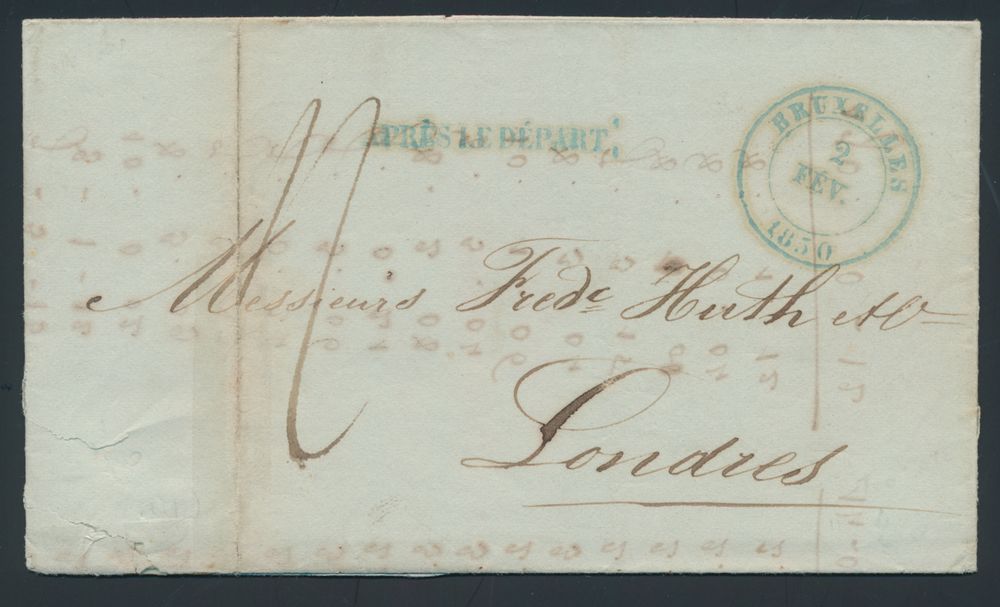 APRÈS LE DÉPART.
BRUXELLES
2
FÉV.
1850
Messieurs Fredc Huth & Co
Londres